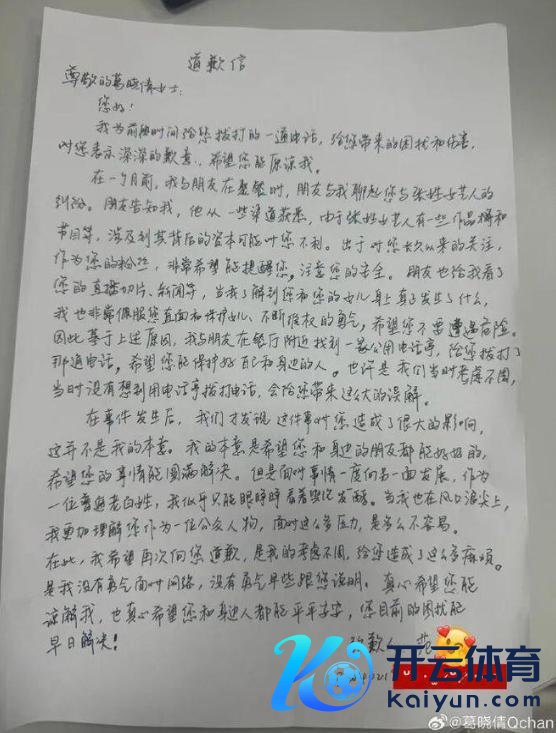 道歉信
尊敬的葛晓倩女士：
您好！
我为前段时间给您拨打的一通电话，给您带来的困扰和伤害，
对您表示深深的歉意，希望您能原谅我。
在一个月前，我与朋友在聚餐时，朋友与我聊起您与张姓女艺人的
纠纷。朋友告知我，他从一些渠道获悉，由于张姓女艺人有一些作品播和
节目等，涉及到其背后的资本可能对您不利。出于对您长久以来的关注，
作为您的粉丝，非常希望能提醒您，注意您的安全。朋友也给我看了
您的直播切片、新闻等，当我了解到您和您的女儿身上真正发生了什么，
我也非常佩服您直面和保护女儿、不断维权的勇气，希望您不要遭遇危险。
因此基于上述原因，我与朋友在银行附近找到一家公用电话亭，给您拨打了
那通电话，希望您能保护好自己和身边的人。也许是我们当时考虑不周，
当时没有想到用电话亭拨打电话，会给您带来这么大的误解。
在事件发生后，我们才发现这件事对您造成了很大的影响，
这并不是我的本意。我的本意是希望您和身边的朋友都能好好的，
希望您的事情能圆满解决。但是面对事情一度向另一面发展，作为
一位普通老百姓，我似乎只能眼睁睁看着发酵。当我也在风口浪尖上，
我更加理解您作为一位公众人物，面对这么多压力，是多么不容易。
在此，我希望再次向您道歉，是我的考虑不周，给您造成了这么多麻烦。
是我没有勇气面对网络，没有勇气早些跟您说明。真心希望您能
谅解我，也真心希望您和身边人都能平平安安，您目前的困扰能
早日解决！
致歉人：范
2021
开云体育
kaiyun.com
@葛晓倩Qchan